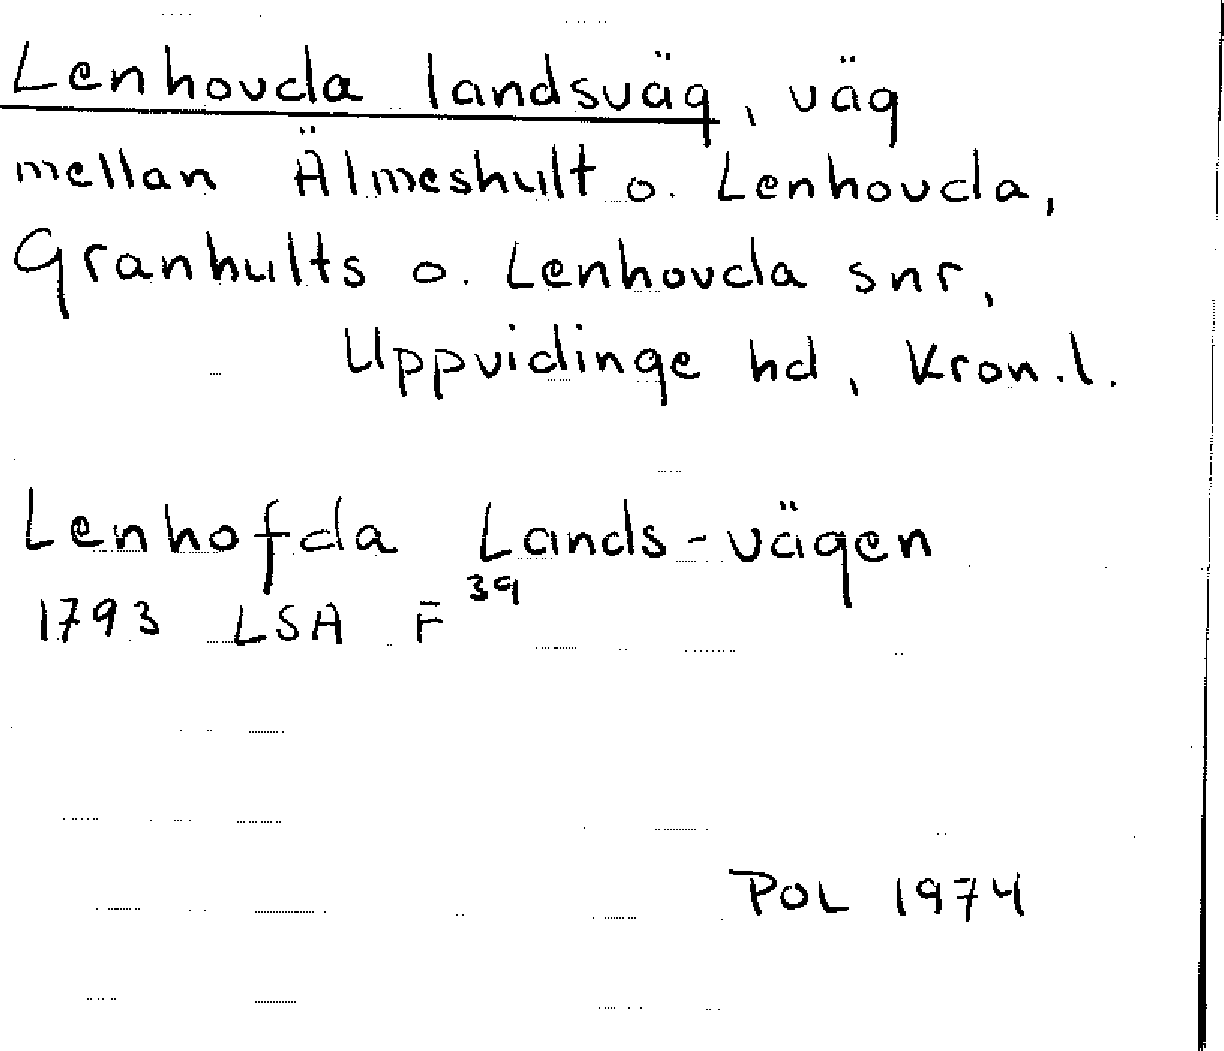 Lenhovda landsväg, väg
mellan Älmeshult o. Lenhovda,
Granhults o. Lenhovda snr,
Uppvidinge hd, Kron.l.
Lenhofda Lands-vägen
1793 LSA F 39
POL 1974